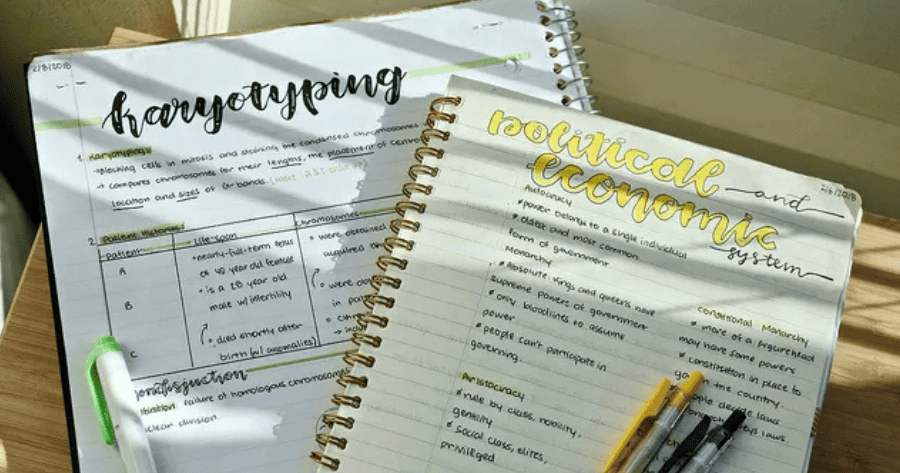 2/8/2018
karyotyping
1. Karyotyping:
blocking cells in mitosis and staining the condensed chromosomes
→ compares chromosomes for their lengths, the placement of centro
location and sizes of G-bands.
2. Patient Histories:
patient
life-span
chromosomes
A
nearly-full-term fetus
of 40 year old female
were obtained
acquired
B
is a 28 year old
male w/ infertility
were
in
C
died shortly after
birth (w/ anomalies)
nondisjunction
failure of homologous chromosomes
clear division.
2/6/2018
political and
economic
system
Autocracy
power belongs to a single individual
oldest and most common
form of government
Monarchy
Absolute: kings and queens have
supreme powers of government
only bloodlines to assume
power
people can't participate in
governing.
Aristocracy
rule by class, nobility,
gentility
social class, elites,
privileged
Monarchy
more of a figurehead
may have some powers
constitution in place to
the country.
people decide laws
laws.